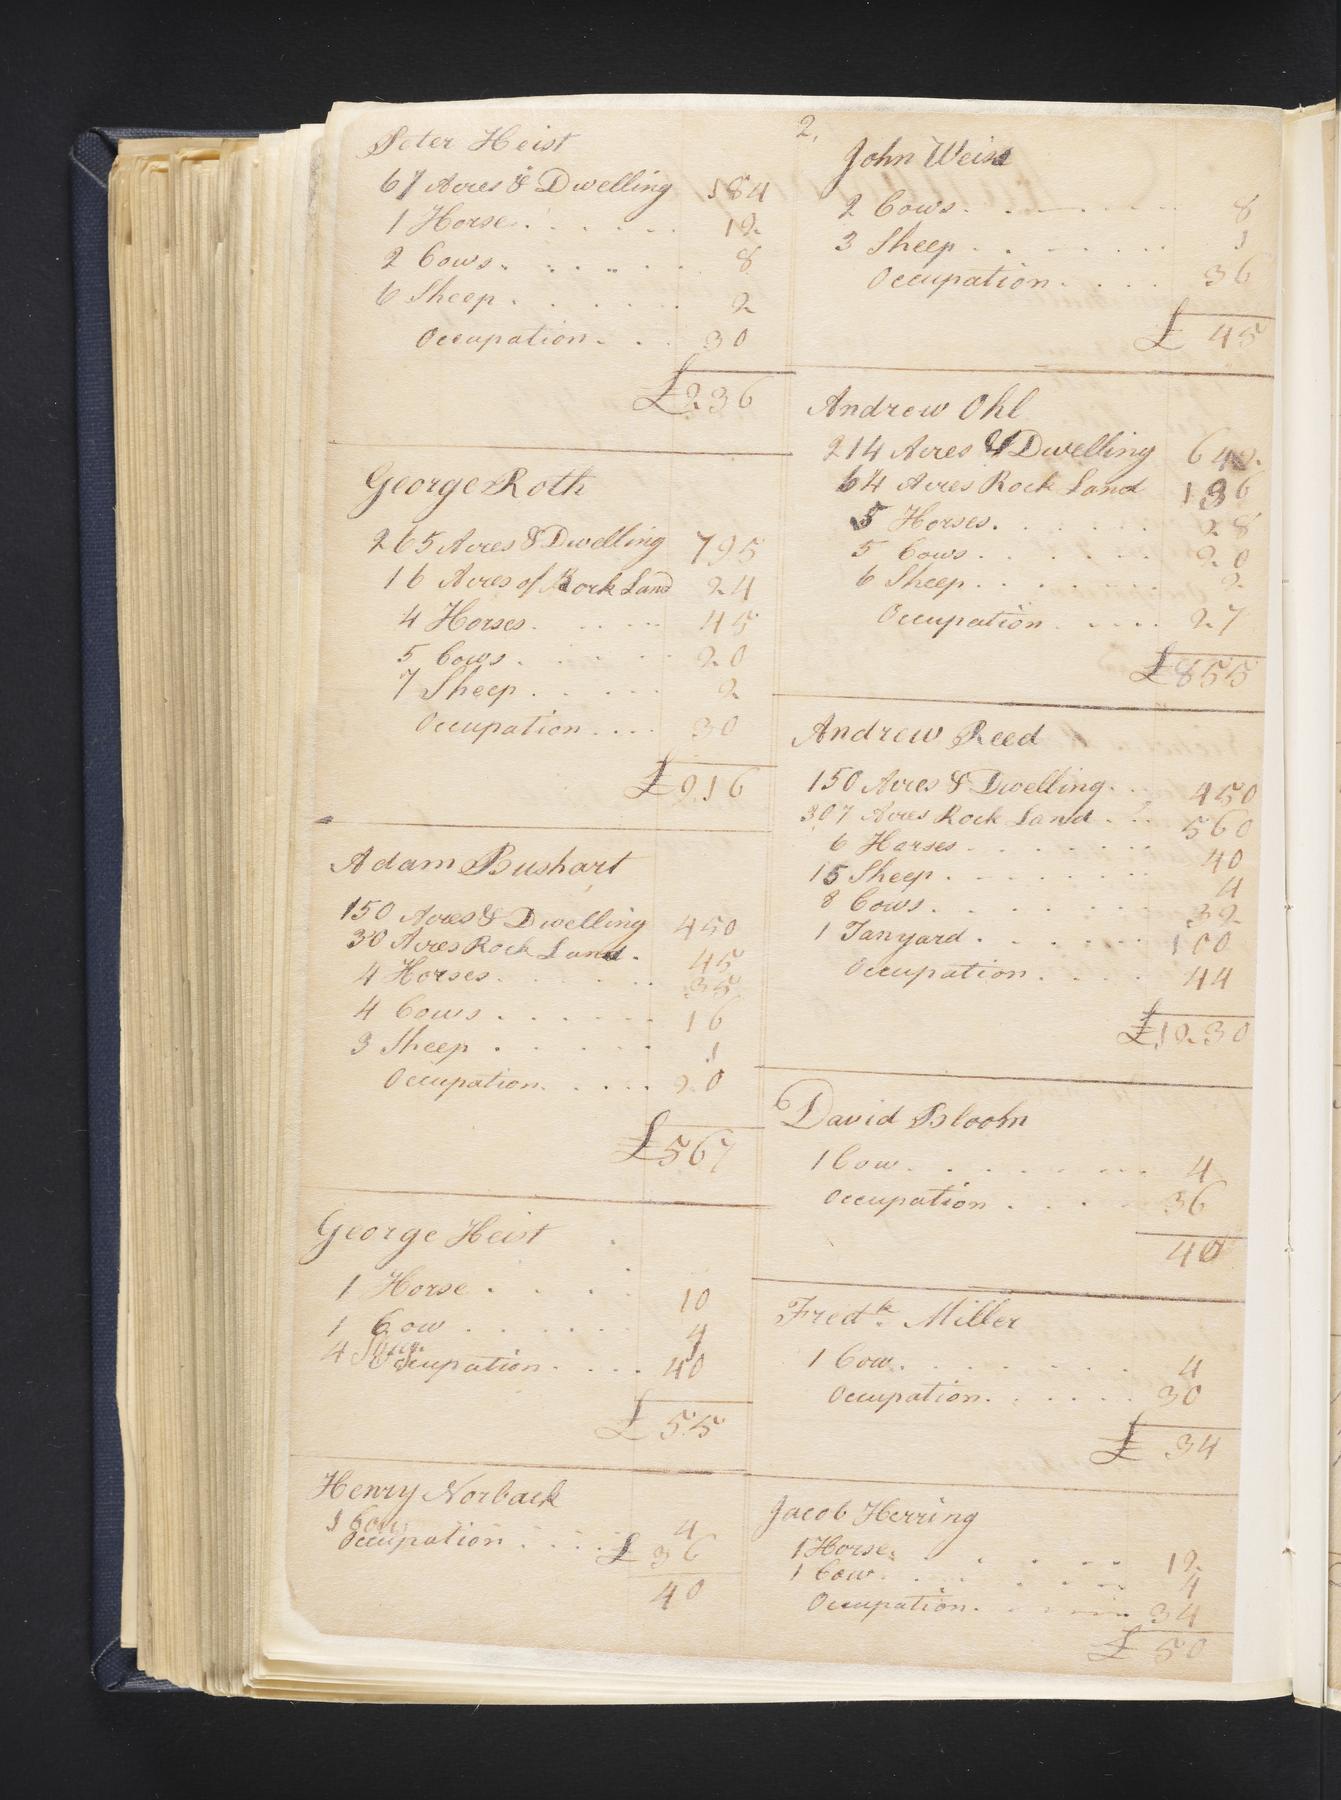 2.
Peter Heist
61 Acres & Dwelling 184
1 Horse 12
2 Cows 8
6 Sheep 2
Occupation 30
£236
George Roth
265 Acres & Dwelling 795
16 Acres of Rock Land 24
4 Horses 45
5 Cows 20
7 Sheep 2
Occupation 30
£916
Adam Bushart
150 Acres & Dwelling 450
30 Acres Rock Land 45
4 Horses 35
4 Cows 16
3 Sheep 1
Occupation 20
£567
George Heist
1 Horse 10
1 Cow 4
4 Sheep 1
Occupation 40
£55
Henry Norback
1 Cow 4
Occupation £36
40
John Weiss
2 Cows 8
3 Sheep 1
Occupation 36
£45
Andrew Ohl
214 Acres & Dwelling 642
64 Acres Rock Land 136
5 Horses 28
5 Cows 20
6 Sheep 2
Occupation 27
£855
Andrew Reed
150 Acres & Dwelling 450
307 Acres Rock Land 560
6 Horses 40
15 Sheep 4
8 Cows 32
1 Tanyard 100
Occupation 44
£1230
David Bloom
1 Cow 4
Occupation 36
40
Fredk. Miller
1 Cow 4
Occupation 30
£34
Jacob Herring
1 Horse 12
1 Cow 4
Occupation 34
£50